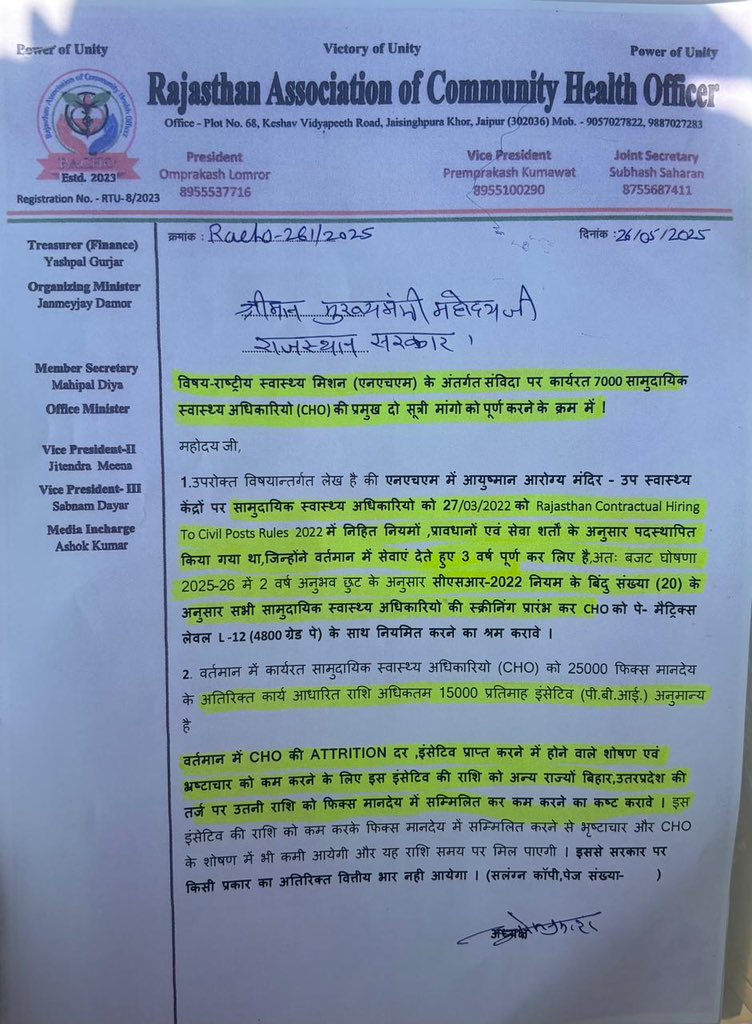 Power of Unity Victory of Unity Power of Unity
Rajasthan Association of Community Health Officer
Office - Plot No. 68, Keshav Vidyapeeth Road, Jaisinghpura Khor, Jaipur (302036) Mob. - 9057027822, 9887027283
Rajasthan Association of Community Health Officer
RACHO
Estd. 2023
Registration No. - RTU-8/2023
President
Omprakash Lomror
8955537716
Vice President
Premprakash Kumawat
8955100290
Joint Secretary
Subhash Saharan
8755687411
Treasurer (Finance)
Yashpal Gurjar
Organizing Minister
Janmeyjay Damor
Member Secretary
Mahipal Diya
Office Minister
Vice President-II
Jitendra Meena
Vice President- III
Sabnam Dayar
Media Incharge
Ashok Kumar
क्रमांक : Racho-261/2025 दिनांक :26/05/2025
श्रीमान मुख्यमंत्री महोदय जी
राजस्थान सरकार ।
विषय-राष्ट्रीय स्वास्थ्य मिशन (एनएचएम) के अंतर्गत संविदा पर कार्यरत 7000 सामुदायिक
स्वास्थ्य अधिकारियो (CHO) की प्रमुख दो सूत्री मांगो को पूर्ण करने के क्रम में !
महोदय जी,
1.उपरोक्त विषयान्तर्गत लेख है की एनएचएम में आयुष्मान आरोग्य मंदिर - उप स्वास्थ्य
केंद्रों पर सामुदायिक स्वास्थ्य अधिकारियो को 27/03/2022 को Rajasthan Contractual Hiring
To Civil Posts Rules 2022 में निहित नियमों ,प्रावधानों एवं सेवा शर्तो के अनुसार पदस्थापित
किया गया था,जिन्होने वर्तमान में सेवाएं देते हुए 3 वर्ष पूर्ण कर लिए है,अतः बजट घोषणा
2025-26 में 2 वर्ष अनुभव छुट के अनुसार सीएसआर-2022 नियम के बिंदु संख्या (20) के
अनुसार सभी सामुदायिक स्वास्थ्य अधिकारियो की स्क्रीनिंग प्रारंभ कर CHO को पे- मेंट्रिक्स
लेवल L-12 (4800 ग्रेड पे) के साथ नियमित करने का श्रम करावे ।
2. वर्तमान में कार्यरत सामुदायिक स्वास्थ्य अधिकारियो (CHO) को 25000 फिक्स मानदेय
के अतिरिक्त कार्य आधारित राशि अधिकतम 15000 प्रतिमाह इंसेटिव (पी.बी.आई.) अनुमान्य
है
वर्तमान में CHO की ATTRITION दर ,इंसेटिव प्राप्त करने में होने वाले शोषण एवं
भ्रष्टाचार को कम करने के लिए इस इंसेटिव की राशि को अन्य राज्यों बिहार,उतरप्रदेश की
तर्ज पर उतनी राशि को फिक्स मानदेय में सम्मिलित कर कम करने का कष्ट करावे । इस
इंसेटिव की राशि को कम करके फिक्स मानदेय में सम्मिलित करने से भृष्टाचार और CHO
के शोषण में भी कमी आयेगी और यह राशि समय पर मिल पाएगी । इससे सरकार पर
किसी प्रकार का अतिरिक्त वित्तीय भार नही आयेगा । (सलंग्न कॉपी,पेज संख्या- )